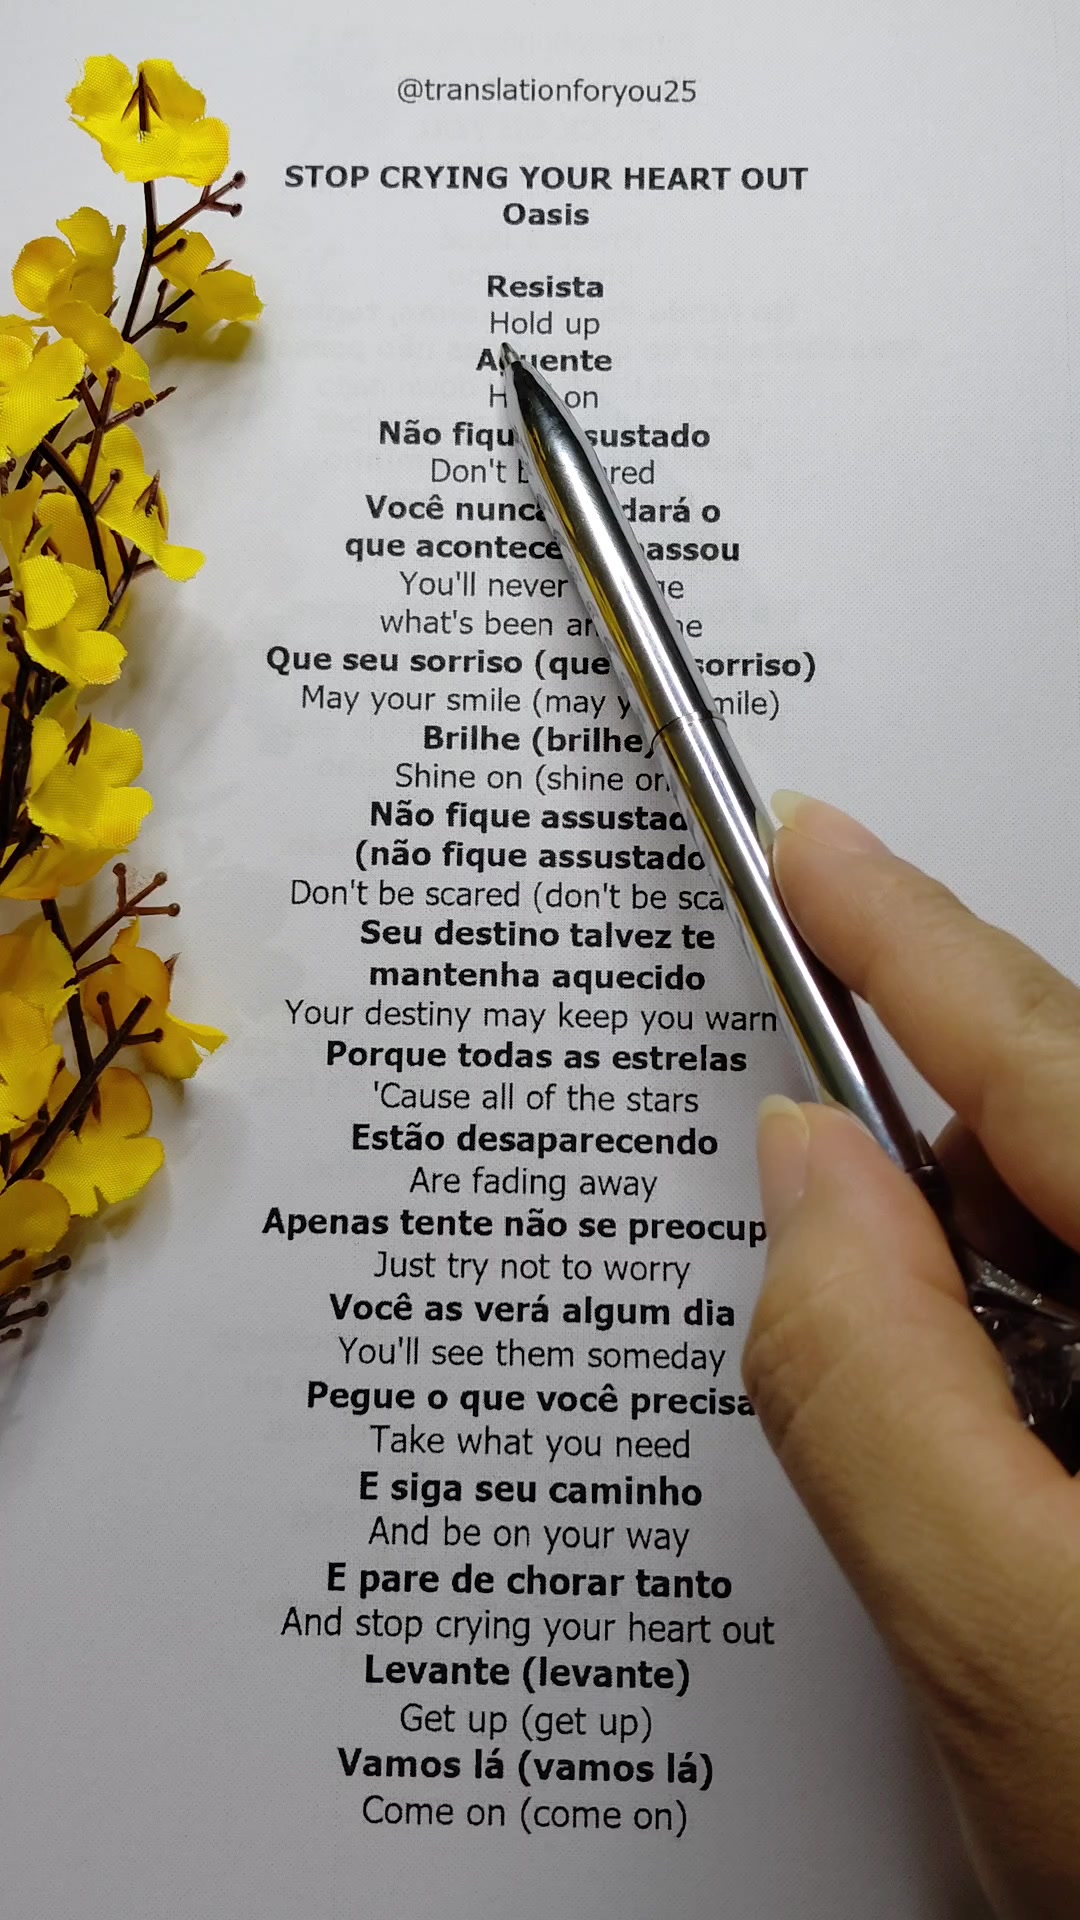 @translationforyou25
STOP CRYING YOUR HEART OUT
Oasis
Resista
Hold up
on
Não
Don't
Você o
que
You'll never
what's been
Que seu sorriso (que sorriso)
May your smile (may
Brilhe (brilhe)
Shine on (shine
Não fique
(não fique assustado
Don't be scared (don't be
Seu destino talvez te
mantenha aquecido
Your destiny may keep you
Porque todas as estrelas
'Cause all of the stars
Estão desaparecendo
Are fading away
Apenas tente não se
Just try not to worry
Você as verá algum dia
You'll see them someday
Pegue o que você precisa
Take what you need
E siga seu caminho
And be on your way
E pare de chorar tanto
And stop crying your heart out
Levante (levante)
Get up (get up)
Vamos lá (vamos lá)
Come on (come on)